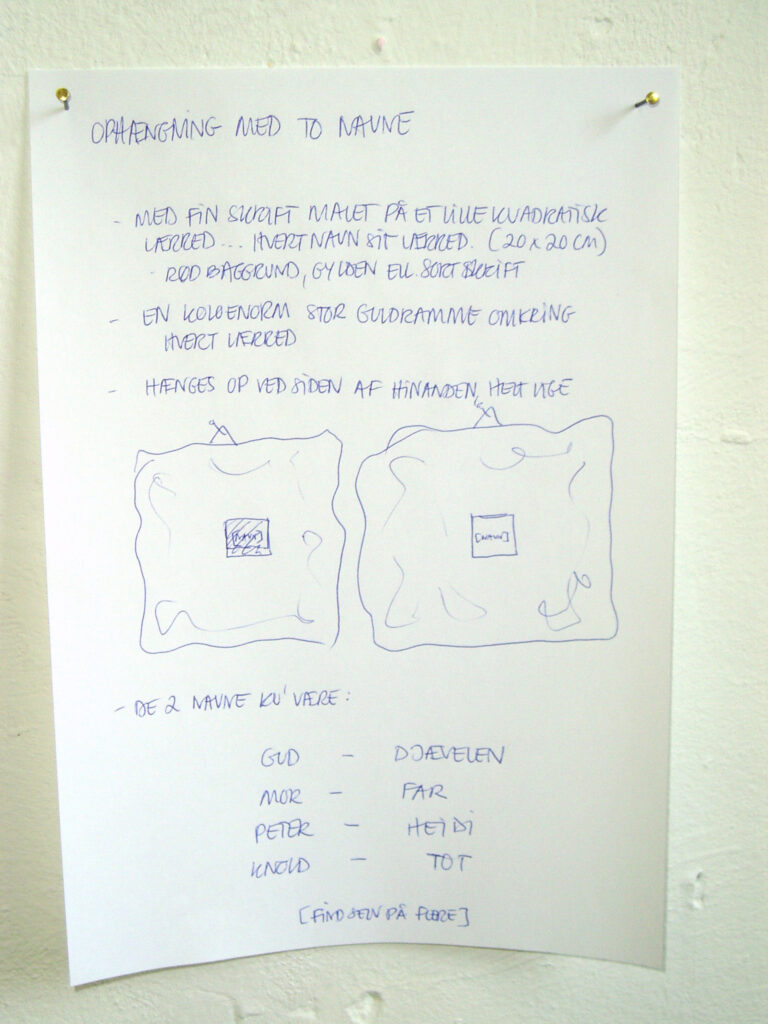 OPHÆNGNING MED TO NAVNE
- MED FIN SKRIFT MALET PÅ ET LILLE KVADRATISK
LÆRRED... HVERT NAVN SIT LÆRRED. (20 x 20 CM)
- RØD BAGGRUND, GYLDEN ELL. SORT SKRIFT
- EN KOLOENORM STOR GULDRAMME OMKRING
HVERT LÆRRED
- HÆNGES OP VED SIDEN AF HINANDEN, HELT LIGE
[NAVN] [NAVN]
- DE 2 NAVNE KU' VÆRE:
GUD - DJÆVELEN
MOR - FAR
PETER - HEIDI
KNOLD - TOT
[FIND SELV PÅ FLERE]